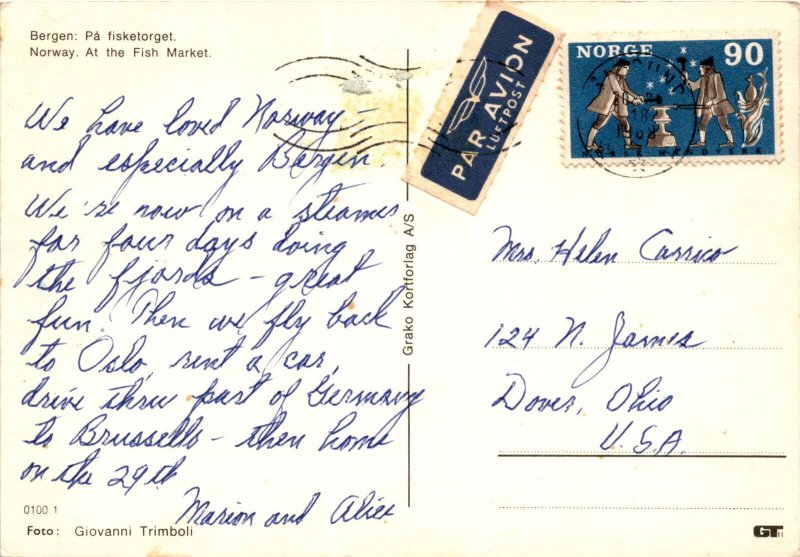 Bergen: På fisketorget.
Norway. At the Fish Market.
We have loved Norway –
and especially Bergen.
We're now on a steamer
for four days doing
the fjords – great
fun. Then we fly back
to Oslo, rent a car,
drive thru part of Germany
to Brussells – then home
on the 29th
Marion and Alice
0100 1
Foto: Giovanni Trimboli
Grako Kortforlag A/S
PAR AVION
LUFTPOST
NORGE 90
NORSK HÅNDVERK
Mrs. Helen Carrico
124 N. James
Dover, Ohio
U.S.A.
GT